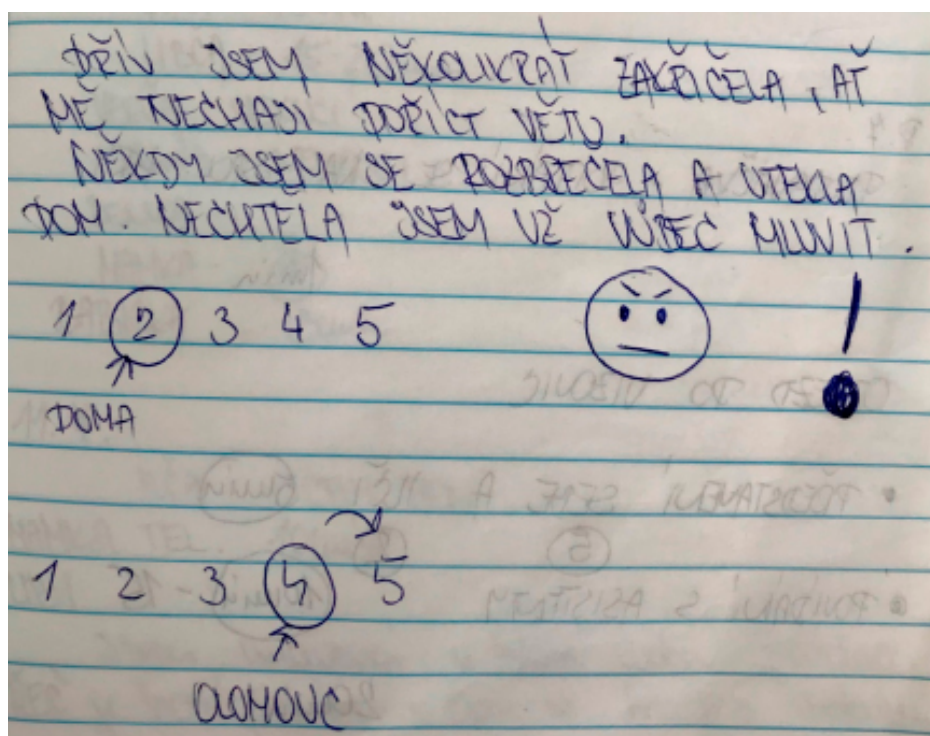 DŘÍV JSEM NĚKOLIKRÁT ZAKŘIČELA, AŤ
MĚ NECHAJI DOŘÍCT VĚTU.
NĚKDY JSEM SE ROZBREČELA A UTEKLA
DOM. NECHTELA JSEM UŽ VŮBEC MLUVIT.
1 2 3 4 5 !
DOMA
1 2 3 4 5
OLOMOUC